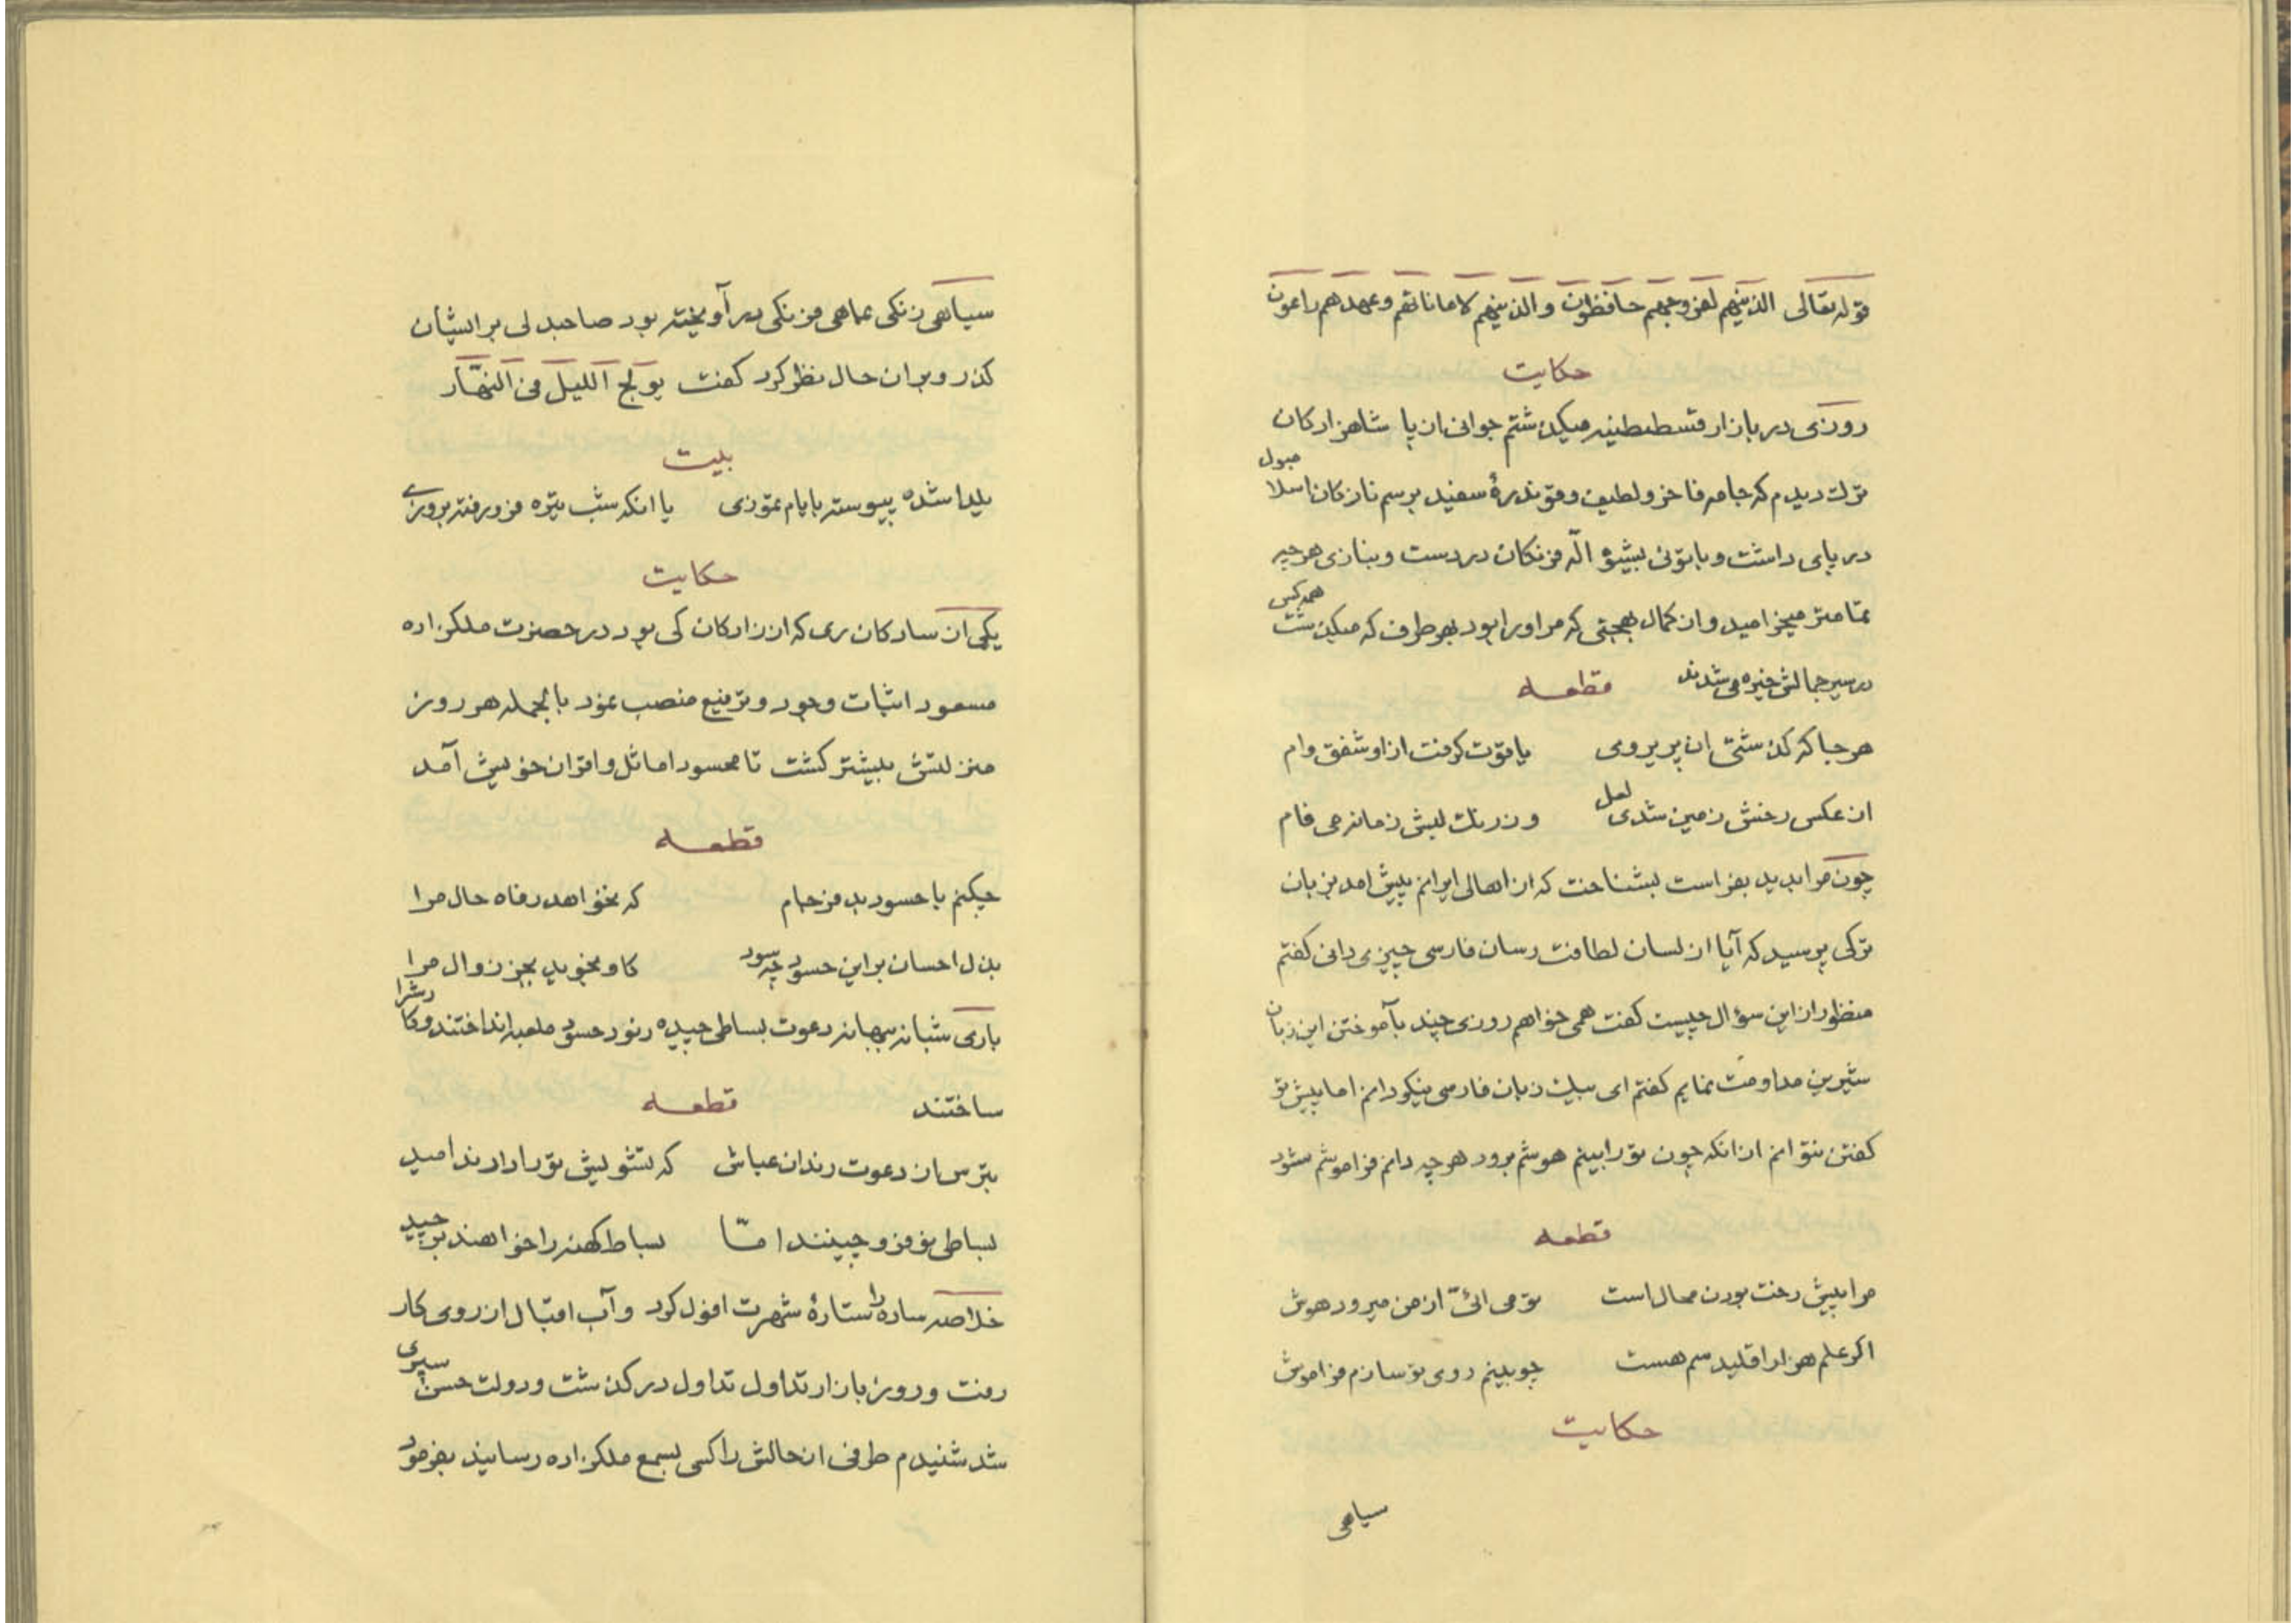 قوله تعالی الذینهم لفروجهم حافظون والذینهم لاماناتهم وعهدهم راعون
حکایت
روزی در بازار قسطنطنیه میکذشتم جوانی از پا شاهزادکان
ترک دیدم که جامه فاخر ولطیف وقوندرهٔ سفید برسم نازکان اسلامبول
در پای داشت وباتونی بشیوه الّه فرنکان در دست وبنازی هرچه
تمامتر میخرامید واز کمال بهجتی که مر اورا بود بهر طرف که میکذشت همه کس
در سیر جمالش خیره می شدند قطعه
هر جا که کذشتی ان پریرومی یاقوت کرفت ازاو شفق وام
از عکس رخش زمین شدی لعل وزرنک لبش زمانه می فام
چون مرا بدید بفراست بشناخت که از اهالی ایرانم پیش امد بزبان
ترکی پرسید که آیا از لسان لطافت رسان فارسی چیزی دانی کفتم
منظور از این سؤال چیست کفت همی خواهم روزی چند بآموختن این زبان
شیرین مداومت نمایم کفتم ای بیک زبان فارسی نیکو دانم اما پیش تو
کفتن نتوانم از انکه چون تورا بینم هوشم برود هرچه دانم فراموشم شود
قطعه
مرا پیش رخت بودن محال است تو می ائیّ از من میرود هوش
اکر علم هزار اقلیدسم هست چو بینم روی تو سازم فراموش
حکایت
سیاهی
سیاهی زنکی بماهی فرنکی در آویخته بود صاحبدلی بر ایشان
کذر وبر ان حال نظر کرد کفت یولج اللیل فی النهّار
بیت
یلدا شده پیوسته بایام تموزی یا انکه شب تیره فرو رفته بروزی
حکایت
یکی از سادکان ری که از زادکان کی بود در حضرت ملکزاده
مسعود اثبات وجود وترفیع منصب نمود بالجمله هر روز
منزلتش بیشتر کشت تا محسود اماثل واقران خویش آمد
قطعه
چکنم با حسود بد فرجام که نخواهد رفاه حال مرا
بذل احسان بر این حسود چه سود کاو نجوید بجز زوال مرا
باری شبانه ببهانه دعوت بساطی چیده ونود حسود ملعبه انداختند وکارشرا
ساختند قطعه
بترس از دعوت رندان عیاش که تشویش تورا دارند امید
بساطی نو فرو چینند امّا بساط کهنه را خواهند برچید
خلاصه ساده را ستارهٔ شهرت افول کرد وآب اقبال از روی کار
رفت وروز بازار تداول تداول در کذشت ودولت حسن سپری
شد شنیدم طرفی از حالش را کسی بسمع ملکزاده رسانید بفرمود